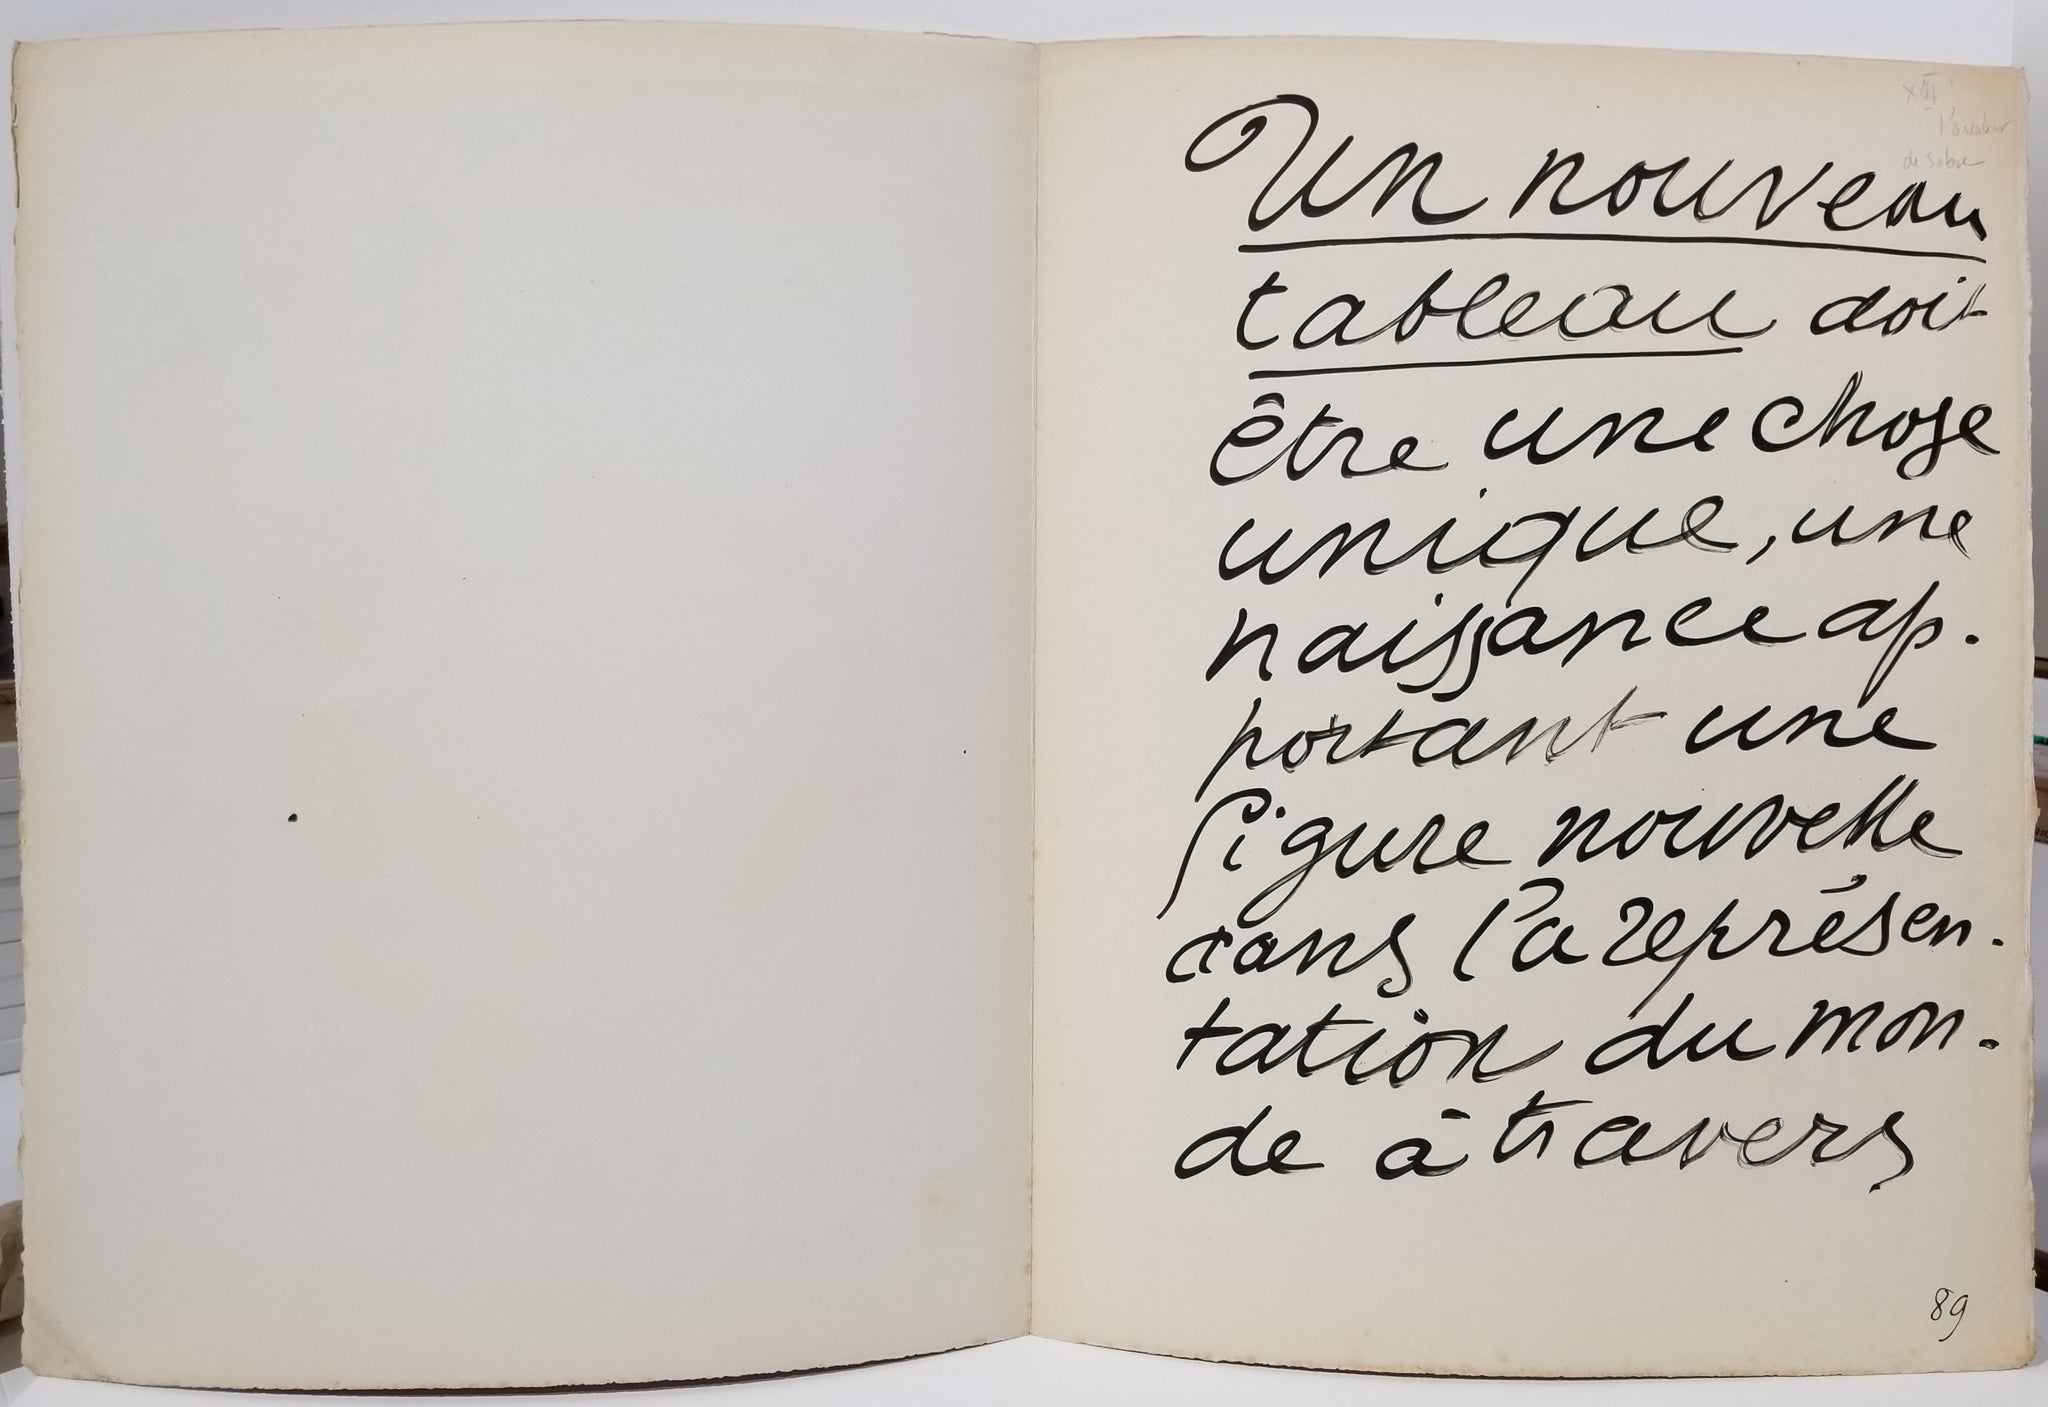 XIII
l'avaleur
de sabre
Un nouveau
tableau doit
être une chose
unique, une
naissance ap-
portant une
figure nouvelle
dans la représen-
tation du mon-
de à travers
89